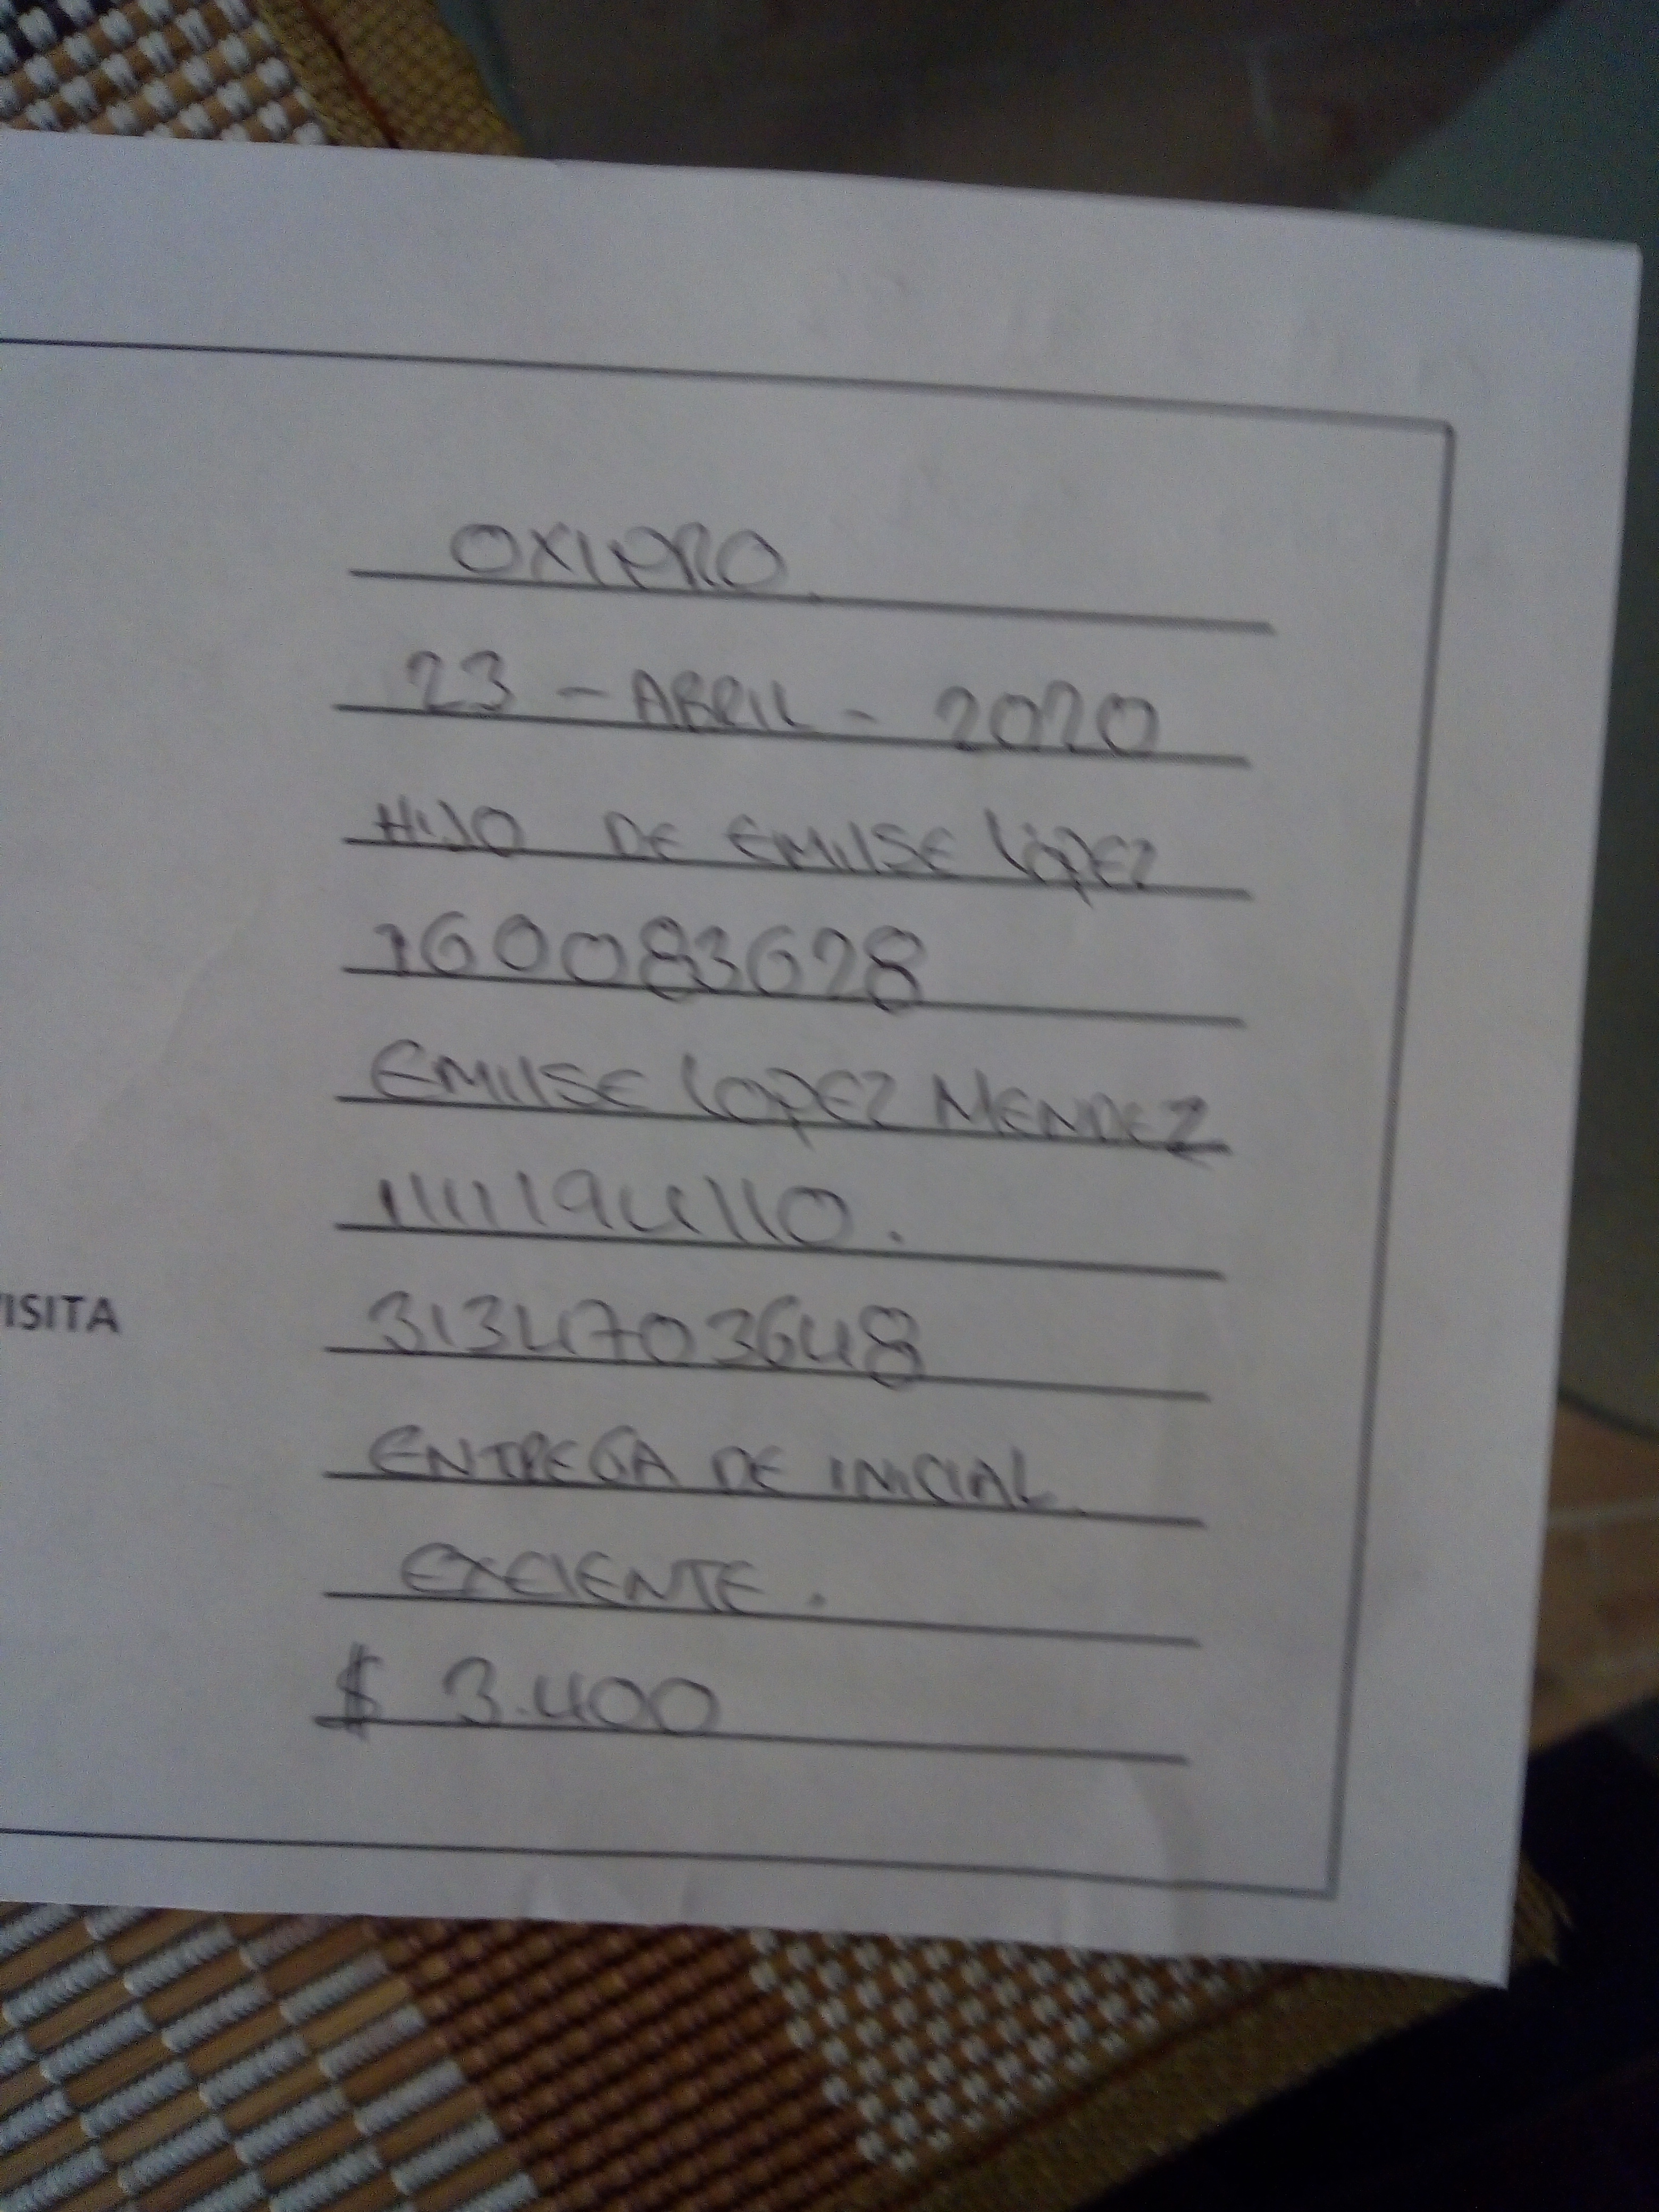 OXIPRO
23 - ABRIL - 2020
HIJO DE EMILSE LÓPEZ
160083628
EMILSE LOPEZ MENDEZ
1111194110.
ISITA
3134703648
ENTREGA DE INICIAL
EXCIENTE.
$ 3.400